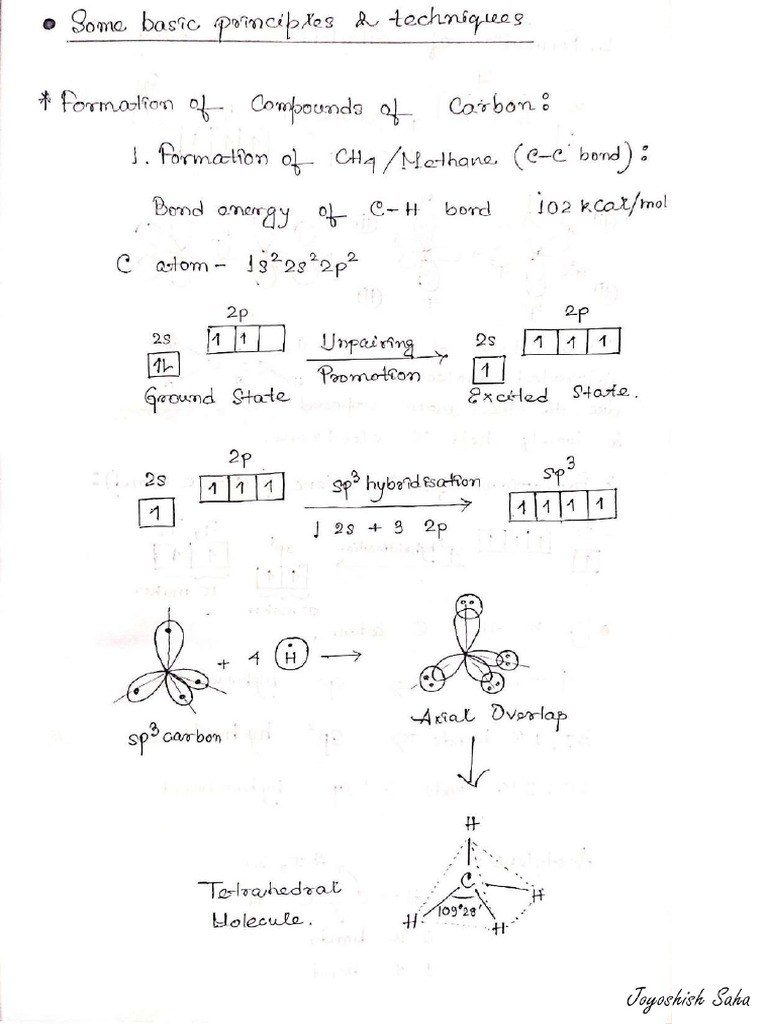 • Some basic principles & techniques
* Formation of Compounds of Carbon:
1. Formation of CH4/Methane (C-C bond):
Bond energy of C-H bond 102 kcal/mol
C atom - 1s²2s²2p²
2p 2p
2s Unpairing 2s
1 1 1 1 1
1L Promotion 1
Ground State Excited State.
2p sp³
2s sp³ hybridisation
1 1 1 1 1 1 1
1 1 2s + 3 2p
+ 4 H
sp³ carbon Axial Overlap
H
C
Tetrahedral H
Molecule. H 109°28' H
Joyoshish Saha